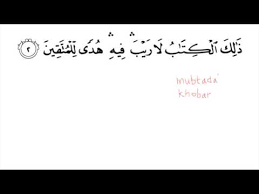 ذَٰلِكَ الْكِتَابُ لَا رَيْبَ ۛ فِيهِ ۛ هُدًى لِّلْمُتَّقِينَ ٢
mubtada'
khobar